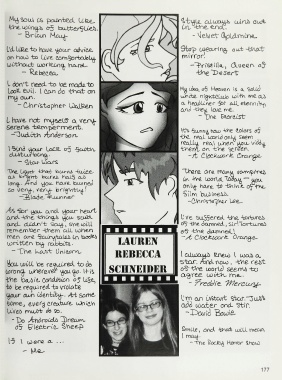 My soul is painted like
the wings of butterflies.
- Brian May
I'd like to have your advice
on how to live comfortably
without working hard.
- Rebecca
I don't need to be made to
look evil. I can do that on
my own.
- Christopher Walken
I have not myself a very
serene temperament.
- Judith Anderson
I find your lack of faith
disturbing.
- Star Wars
The light that burns twice
as bright burns half as
long. And you have burned
so very, very brightly!
- Blade Runner
As for you and your heart
and the things you said
and didn't say, she will
remember them all when
men are fairytales in books
written by rabbits.
- The Last Unicorn
You will be required to do
wrong wherever you go. It is
the basic condition of life,
to be required to violate
your own identity. At some
time, every creature which
lives must do so.
- Do Androids Dream
of Electric Sheep
If I were a ...
- Me
LAUREN
REBECCA
SCHNEIDER
style always wins out
in the end.
- Velvet Goldmine
Stop wearing out that
mirror.
- Priscilla, Queen of
the Desert
My idea of Heaven is a solid
white nightclub with me as
a headliner for all eternity,
and they love me.
- The Exorcist
It's funny how the colors of
the real world only seem
really real when you viddy
them on the screen.
- A Clockwork Orange
There are many vampires
in the world today, you
only have to think of the
film business.
- Christopher Lee
I've suffered the tortures of
the damned, sir! Tortures
of the damned!
- A Clockwork Orange
I always knew I was a
star. And now, the rest
of the world seems to
agree with me.
- Freddie Mercury
I'm an instant star. Just
add water and stir.
- David Bowie
Smile, and that will mean
I may.
- The Rocky Horror Show
177